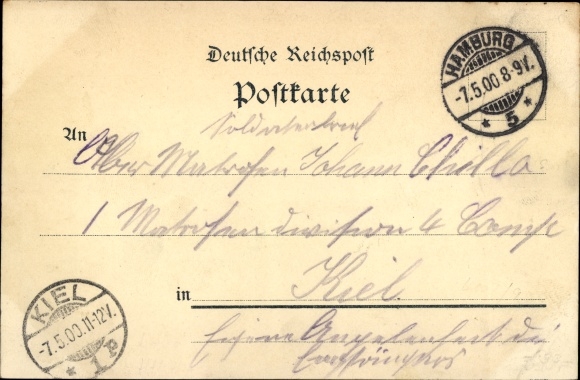 Deutsche Reichspost
Postkarte
HAMBURG
-7.5.00.8-9V.
* 5 *
Soldatenbrief
An
Ober Matrosen Johann
1 Matrosen division 4 Comp
in Kiel
Eigene Angelenheit des
Empfängers
KIEL
-7.5.00.11-12V.
* 1a